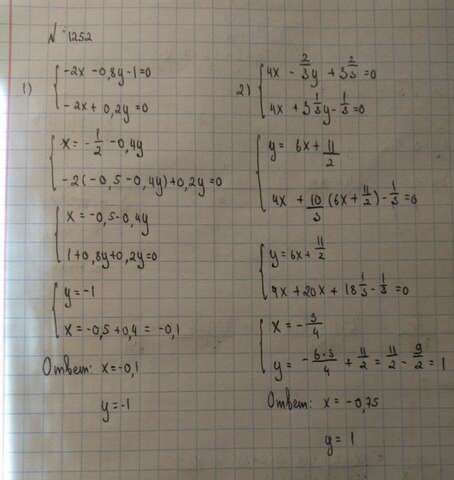 № 1252
1) { -2x - 0,8y - 1 = 0
-2x + 0,2y = 0
{ x = -1/2 - 0,4y
-2(-0,5 - 0,4y) + 0,2y = 0
{ x = -0,5 - 0,4y
1 + 0,8y + 0,2y = 0
{ y = -1
x = -0,5 + 0,4 = -0,1
Ответ: x = -0,1
y = -1
2) { 4x - 2/3y + 3 2/3 = 0
4x + 3 1/3y - 1/3 = 0
{ y = 6x + 11/2
4x + 10/3 (6x + 11/2) - 1/3 = 0
{ y = 6x + 11/2
4x + 20x + 18 1/3 - 1/3 = 0
{ x = -3/4
y = -6·3/4 + 11/2 = 11/2 - 9/2 = 1
Ответ: x = -0,75
y = 1